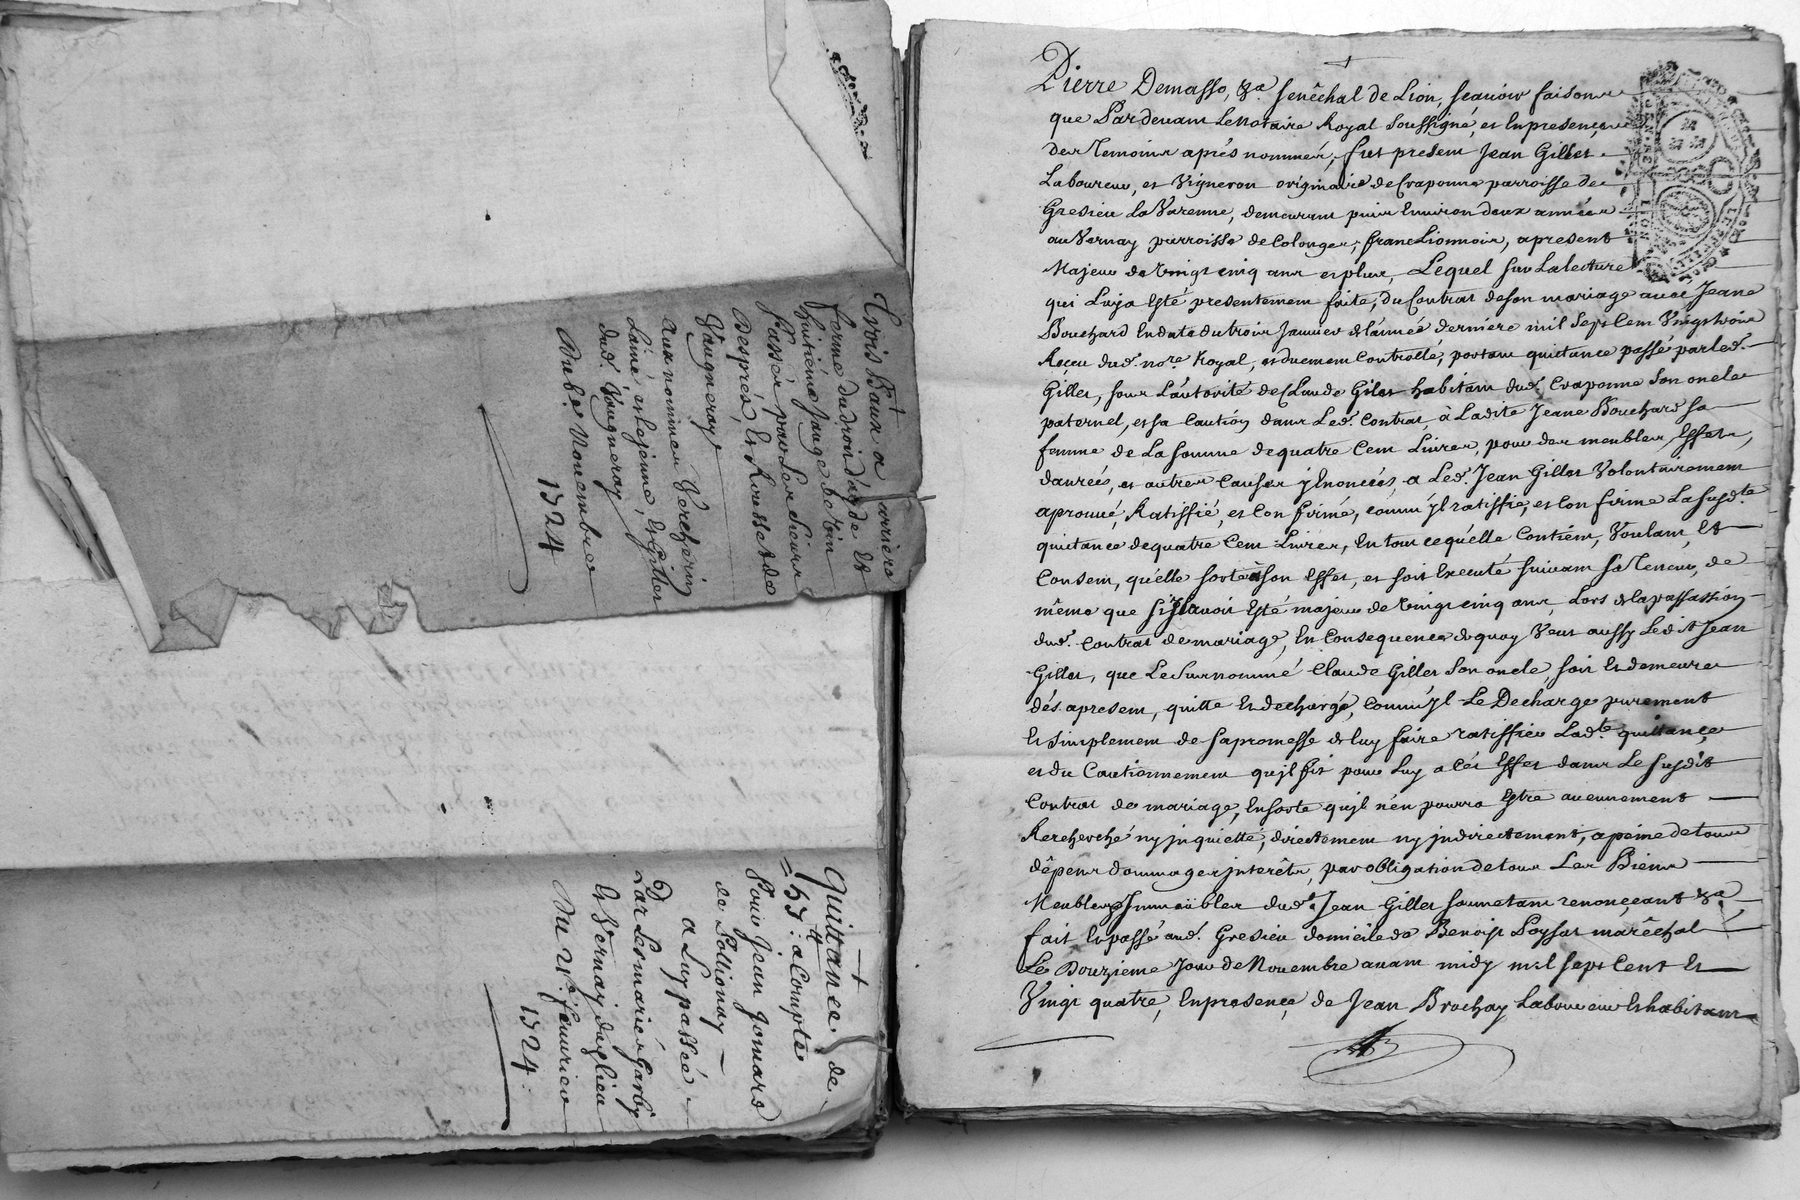 Trois Baux a arriere
ferme du droit d'ayde et
huitième Jauge de vin
Passés par Les Sieurs
Desprès, et Rousset de
Vaugneray
Aux nommez Vercherin
Lainé et Lejeune, et Gillet
dud. Vaugneray
Du 8e. Novembre
1724
Quittance de
53.tt a Compte
Pour Jean Jomard
de Pollionay
a Luy passée
Par Les mariés Garby
et Vernay dud. lieu
Du 21e. fevurier
1724.
Pierre Demasso, &a. senêchal de Lion, sçavoir faisons
que Pardevant Le Notaire Royal soussigné, et En presençe
des Temoins aprés nommés, fut present Jean Gillet
Laboureur, et Vigneron originaire de Craponne parroisse de
Gresieu La Varenne, demeurant puis Environ deux années
au Vernay parroisse de Colonges, franc Lionnois, apresent
Majeur de Vingt cinq ans et plus, Lequel sur La lecture
qui Luy a Esté presentement faite, du Contrat de son mariage avec Jeane
Bouchard En date du trois Janvier de l'année derniere mil sept Cent Vingt trois
Receu dud. nore. Royal, et duement Controllé, portant quictance passé par led.
Gillet, sous L'autorité de Claude Gillet habitant dud. Craponne son oncle
paternel, et sa Caution dans Led. Contrat, à Ladite Jeane Bouchard sa
femme de La somme de quatre Cent Livres, pour des meubles, Effets,
danrées, et autres Causes y Enoncées a Led. Jean Gillet Volontairement
aprouvé, Ratiffié, et Confirmé, comm'yl ratiffie, et Confirme La susd.te
quictance de quatre Cent Livres, En tout ce qu'elle Contient, Voulant, Et
Consent, qu'elle sorte son Effet, et soit Executé suivant sa Teneur, de
même que s'il avoit Esté majeur de Vingt cinq ans, Lors de la passassion
dud. Contrat de mariage, En Consequence de quoy Veut aussy Ledit Jean
Gillet, que Le surnommé Claude Gillet son oncle, soit Et demeure
dés apresent, quitte Et dechargé, comm'yl Le Decharge purement
Et simplement de sa promesse de luy faire ratiffier Lad.te quittançe
et du Cautionnement qu'jl fit pour Luy a Cet Effet dans Le susdit
Contrat de mariage, En sorte qu'jl n'en pourra Estre aucunement
Rercherché ny jnquietté, directement ny jndirectement, a peine de tous
dêpens dommages jnterêts, par obligation de tous Les Biens
Meubles & Jmmeubles dud. Jean Gillet soumettant renonçeant &a.
fait Et passé aud. Gresieu domicile de Benoist Poyset marêchal
Le Douzieme Jour de Novembre avant midy mil sept Cent Et
Vingt quatre, En presençe de Jean Brochay Laboureur Et habitant